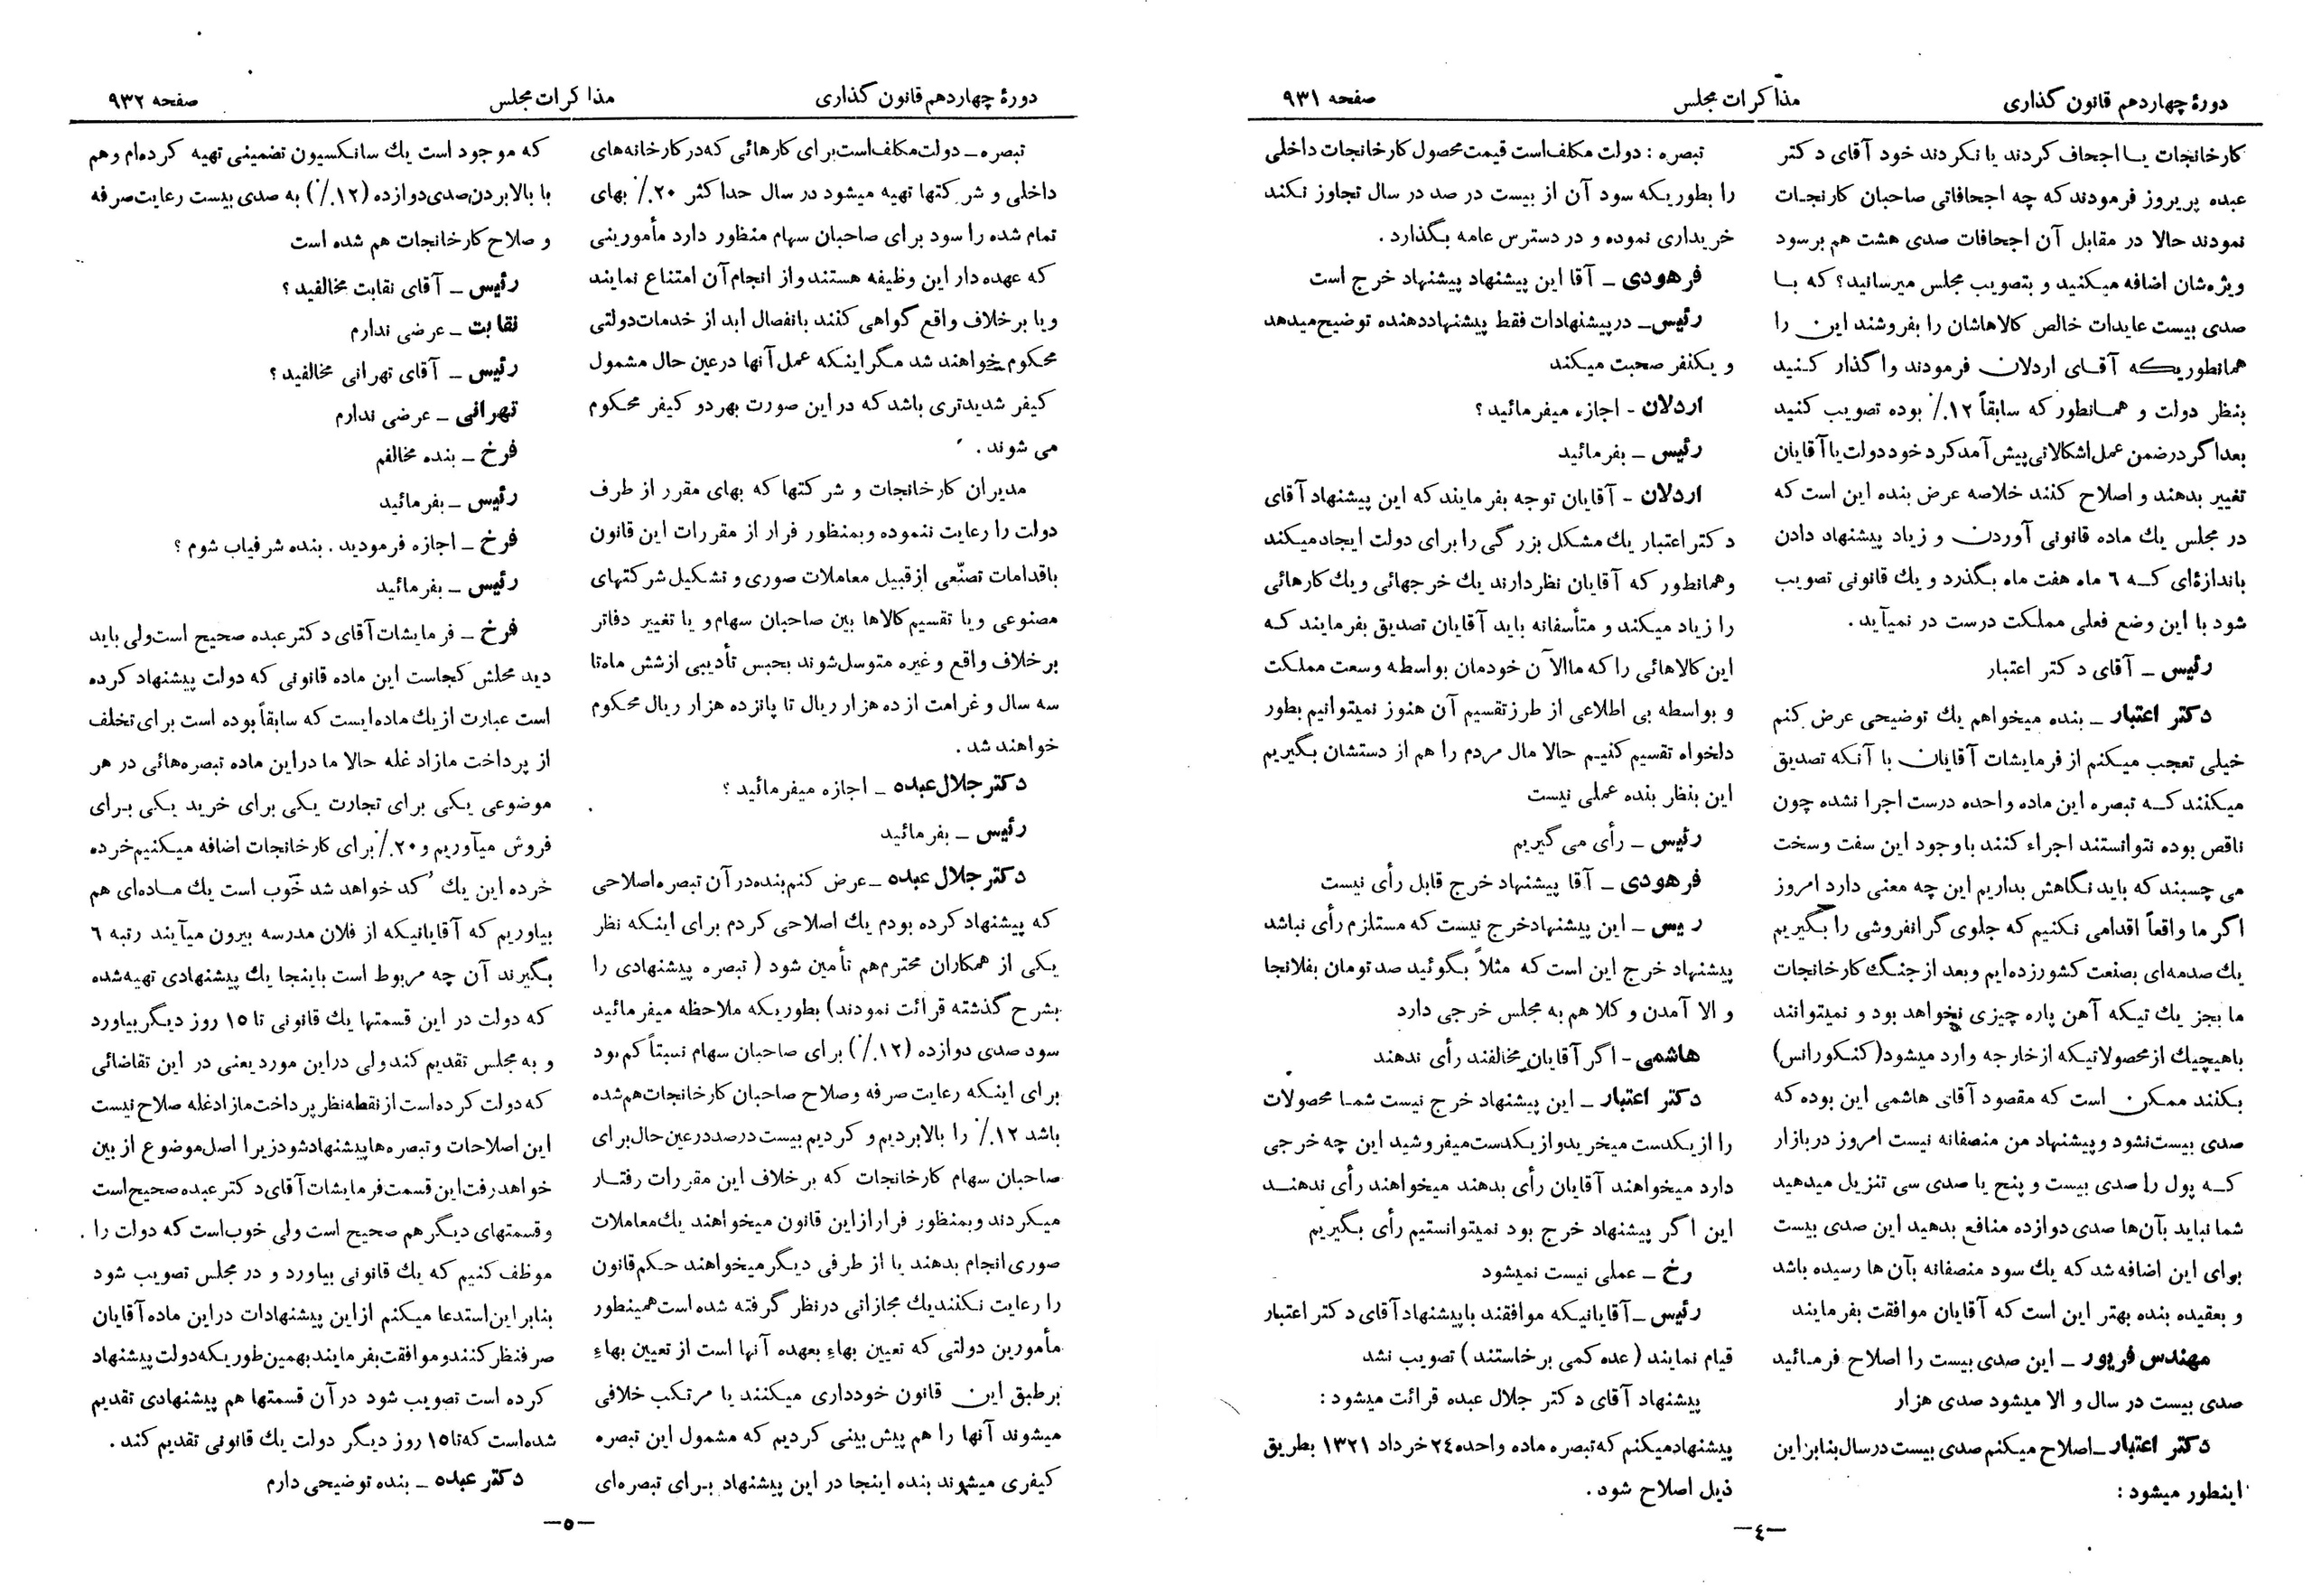 دورهٔ چهاردهم قانون گذاری
مذاکرات مجلس
صفحه ۹۳۱
کارخانجات یا اجحاف کردند یا نکردند خود آقای دکتر
عبده پریروز فرمودند که چه اجحافاتی صاحبان کارنجات
نمودند حالا در مقابل آن اجحافات صدی هشت هم برسود
ویژه‌شان اضافه میکنید و بتصویب مجلس میرسانید؟ که با
صدی بیست عایدات خالص کالاهاشان را بفروشند این را
همانطوریکه آقای اردلان فرمودند واگذار کنید
بنظر دولت و همانطور که سابقاً ۱۲٪ بوده تصویب کنید
بعداگر درضمن عمل اشکالاتی پیش آمد کرد خود دولت یا آقایان
تغییر بدهند و اصلاح کنند خلاصه عرض بنده این است که
در مجلس یك ماده قانونی آوردن و زیاد پیشنهاد دادن
باندازه‌ای که ٦ ماه هفت ماه بگذرد و یك قانونی تصویب
شود با این وضع فعلی مملکت درست در نمیآید.
رئیس ـ آقای دکتر اعتبار
دکتر اعتبار ـ بنده میخواهم یك توضیحی عرض کنم
خیلی تعجب میکنم از فرمایشات آقایان با آنکه تصدیق
میکنند که تبصره این ماده واحده درست اجرا نشده چون
ناقص بوده نتوانستند اجراء کنند با وجود این سفت وسخت
می چسبند که باید نگاهش بداریم این چه معنی دارد امروز
اگر ما واقعاً اقدامی نکنیم که جلوی گرانفروشی را بگیریم
یك صدمه‌ای بصنعت کشور زده‌ایم وبعد از جنگ کارخانجات
ما بجز یك تیکه آهن پاره چیزی نخواهد بود و نمیتوانند
باهیچیك از محصولاتیکه از خارجه وارد میشود (کنکورانس)
بکنند ممکن است که مقصود آقای هاشمی این بوده که
صدی بیست نشود و پیشنهاد من منصفانه نیست امروز در بازار
که پول را صدی بیست و پنج یا صدی سی تنزیل میدهید
شما نباید بآن‌ها صدی دوازده منافع بدهید این صدی بیست
برای این اضافه شد که یك سود منصفانه بآن ها رسیده باشد
و بعقیده بنده بهتر این است که آقایان موافقت بفرمایند
مهندس فریور ـ این صدی بیست را اصلاح فرمائید
صدی بیست در سال و الا میشود صدی هزار
دکتر اعتبار ـ اصلاح میکنم صدی بیست در سال بنابراین
اینطور میشود:
تبصره: دولت مکلف است قیمت محصول کارخانجات داخلی
را بطوریکه سود آن از بیست در صد در سال تجاوز نکند
خریداری نموده و در دسترس عامه بگذارد.
فرهودی ـ آقا این پیشنهاد پیشنهاد خرج است
رئیس ـ درپیشنهادات فقط پیشنهاددهنده توضیح میدهد
و یکنفر صحبت میکند
اردلان - اجازه میفرمائید؟
رئیس ـ بفرمائید
اردلان - آقایان توجه بفرمایند که این پیشنهاد آقای
دکتر اعتبار یك مشکل بزرگی را برای دولت ایجاد میکند
و همانطور که آقایان نظر دارند یك خرجهائی ویك کارهائی
را زیاد میکند و متأسفانه باید آقایان تصدیق بفرمایند که
این کالاهائی را که ما الآن خودمان بواسطه وسعت مملکت
و بواسطه بی اطلاعی از طرز تقسیم آن هنوز نمیتوانیم بطور
دلخواه تقسیم کنیم حالا مال مردم را هم از دستشان بگیریم
این بنظر بنده عملی نیست
رئیس ـ رأی می گیریم
فرهودی ـ آقا پیشنهاد خرج قابل رأی نیست
ریس ـ این پیشنهاد خرج نیست که مستلزم رأی نباشد
پیشنهاد خرج این است که مثلاً بگوئید صد تومان بفلانجا
و الا آمدن و کلا هم به مجلس خرجی دارد
هاشمی - اگر آقایان مخالفند رأی ندهند
دکتر اعتبار ـ این پیشنهاد خرج نیست شما محصولات
را از یکدست میخرید و از یکدست میفروشید این چه خرجی
دارد میخواهند آقایان رأی بدهند میخواهند رأی ندهند
این اگر پیشنهاد خرج بود نمیتوانستیم رأی بگیریم
رخ ـ عملی نیست نمیشود
رئیس ـ آقایانیکه موافقند با پیشنهاد آقای دکتر اعتبار
قیام نمایند (عده کمی برخاستند) تصویب نشد
پیشنهاد آقای دکتر جلال عبده قرائت میشود:
پیشنهاد میکنم که تبصره ماده واحده ۲٤ خرداد ۱۳۲۱ بطریق
ذیل اصلاح شود.
ـ٤ـ
دورهٔ چهاردهم قانون گذاری
مذاکرات مجلس
صفحه ۹۳۲
تبصره ـ دولت مکلف است برای کارهائی که در کارخانه‌های
داخلی و شرکتها تهیه میشود در سال حداکثر ۲۰٪ بهای
تمام شده را سود برای صاحبان سهام منظور دارد مأمورینی
که عهده دار این وظیفه هستند و از انجام آن امتناع نمایند
ویا برخلاف واقع گواهی کنند بانفصال ابد از خدمات دولتی
محکوم خواهند شد مگر اینکه عمل آنها درعین حال مشمول
کیفر شدیدتری باشد که در این صورت بهر دو کیفر محکوم
می شوند.
مدیران کارخانجات و شرکتها که بهای مقرر از طرف
دولت را رعایت ننموده وبمنظور فرار از مقررات این قانون
باقدامات تصنّعی از قبیل معاملات صوری و تشکیل شرکتهای
مصنوعی ویا تقسیم کالاها بین صاحبان سهام و یا تغییر دفاتر
برخلاف واقع وغیره متوسل شوند بحبس تأدیبی از شش ماه تا
سه سال و غرامت از ده هزار ریال تا پانزده هزار ریال محکوم
خواهند شد.
دکتر جلال عبده ـ اجازه میفرمائید؟
رئیس ـ بفرمائید
دکتر جلال عبده ـ عرض کنم بنده در آن تبصره اصلاحی
که پیشنهاد کرده بودم یك اصلاحی کردم برای اینکه نظر
یکی از همکاران محترم هم تأمین شود (تبصره پیشنهادی را
بشرح گذشته قرائت نمودند) بطوریکه ملاحظه میفرمائید
سود صدی دوازده (۱۲٪) برای صاحبان سهام نسبتاً کم بود
برای اینکه رعایت صرفه وصلاح صاحبان کارخانجات هم شده
باشد ۱۲٪ را بالا بردیم و کردیم بیست درصد درعین حال برای
صاحبان سهام کارخانجات که برخلاف این مقررات رفتار
میکردند و بمنظور فرار از این قانون میخواهند یك معاملات
صوری انجام بدهند یا از طرفی دیگر میخواهند حکم قانون
را رعایت نکنند یك مجازاتی درنظر گرفته شده است همینطور
مأمورین دولتی که تعیین بهاء بعهده آنها است از تعیین بهاء
برطبق این قانون خودداری میکنند یا مرتکب خلافی
میشوند آنها را هم پیش بینی کردیم که مشمول این تبصره
کیفری میشوند بنده اینجا در این پیشنهاد برای تبصره‌ای
که موجود است یك سانکسیون تضمینی تهیه کرده‌ام وهم
با بالا بردن صدی دوازده (۱۲٪) به صدی بیست رعایت صرفه
و صلاح کارخانجات هم شده است
رئیس ـ آقای نقابت مخالفید؟
نقابت ـ عرضی ندارم
رئیس ـ آقای تهرانی مخالفید؟
تهرانی ـ عرضی ندارم
فرخ ـ بنده مخالفم
رئیس ـ بفرمائید
فرخ ـ اجازه فرمودید. بنده شرفیاب شوم؟
رئیس ـ بفرمائید
فرخ ـ فرمایشات آقای دکتر عبده صحیح است ولی باید
دید محلش کجاست این ماده قانونی که دولت پیشنهاد کرده
است عبارت از یك ماده‌ایست که سابقاً بوده است برای تخلف
از پرداخت مازاد غله حالا ما در این ماده تبصره‌هائی در هر
موضوعی یکی برای تجارت یکی برای خرید یکی برای
فروش میآوریم و ۲۰٪ برای کارخانجات اضافه میکنیم خرده
خرده این یك کد خواهد شد خوب است یك ماده‌ای هم
بیاوریم که آقایانیکه از فلان مدرسه بیرون میآیند رتبه ٦
بگیرند آن چه مربوط است باینجا یك پیشنهادی تهیه شده
که دولت در این قسمتها یك قانونی تا ۱۵ روز دیگر بیاورد
و به مجلس تقدیم کند ولی در این مورد یعنی در این تقاضائی
که دولت کرده است از نقطه نظر پرداخت مازاد غله صلاح نیست
این اصلاحات و تبصره ها پیشنهاد شود زیرا اصل موضوع از بین
خواهد رفت این قسمت فرمایشات آقای دکتر عبده صحیح است
و قسمتهای دیگر هم صحیح است ولی خوب است که دولت را
موظف کنیم که یك قانونی بیاورد و در مجلس تصویب شود
بنابراین استدعا میکنم از این پیشنهادات در این ماده آقایان
صرفنظر کنند و موافقت بفرمایند بهمین طوریکه دولت پیشنهاد
کرده است تصویب شود در آن قسمتها هم پیشنهادی تقدیم
شده است که تا ۱۵ روز دیگر دولت یك قانونی تقدیم کند.
دکتر عبده ـ بنده توضیحی دارم
ـ۵ـ